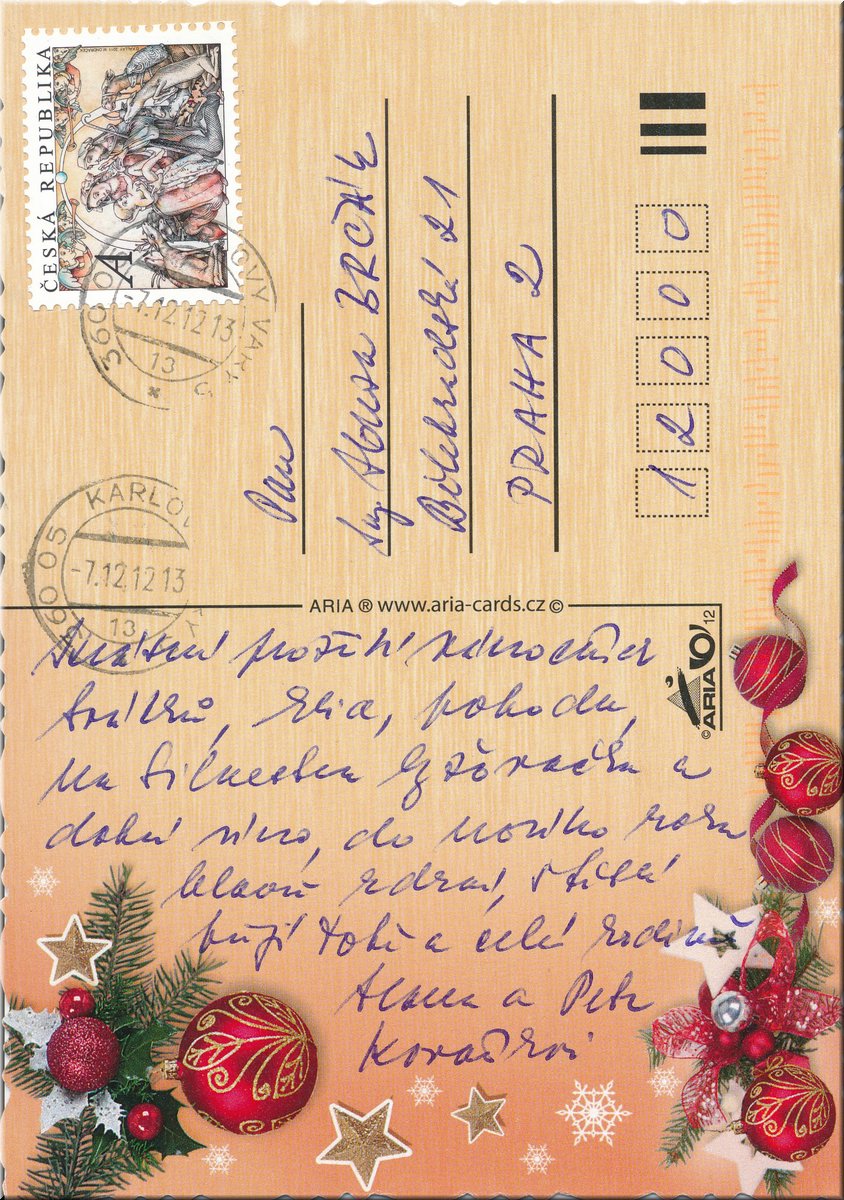 ČESKÁ REPUBLIKA
A
360 05
-7.12.12 13
13
KARLO
360 05
-7.12.12 13
13
Pan
Ing. BRĎÁK
Bělehradská 21
PRAHA 2
12000
ARIA ® www.aria-cards.cz ©
© ARIA 12
prožití vánočních
svátků, pohodu,
na Silvestra a
dobré víno, do nového roku
hlavně zdraví, štěstí
přejí Tobě a celé rodině
Alena a Petr
Kovaříkovi